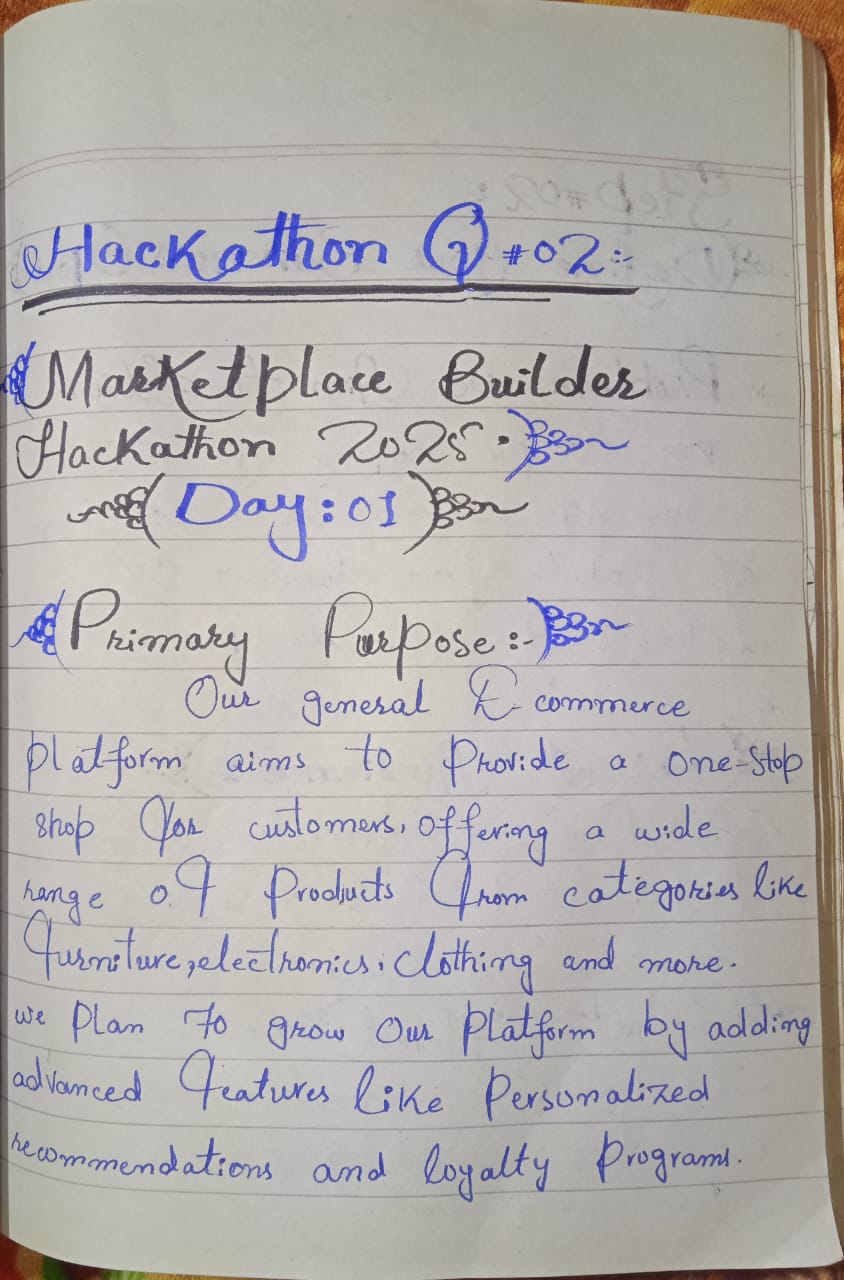 Hackathon Q #02:-
Marketplace Builder
Hackathon 2025.
Day:01
Primary Purpose:-
Our general E-commerce
platform aims to Provide a one-stop
shop for customers, offering a wide
range of Products from categories like
furniture, electronics, clothing and more.
we Plan to grow our Platform by adding
advanced features like Personalized
recommendations and loyalty Programs.